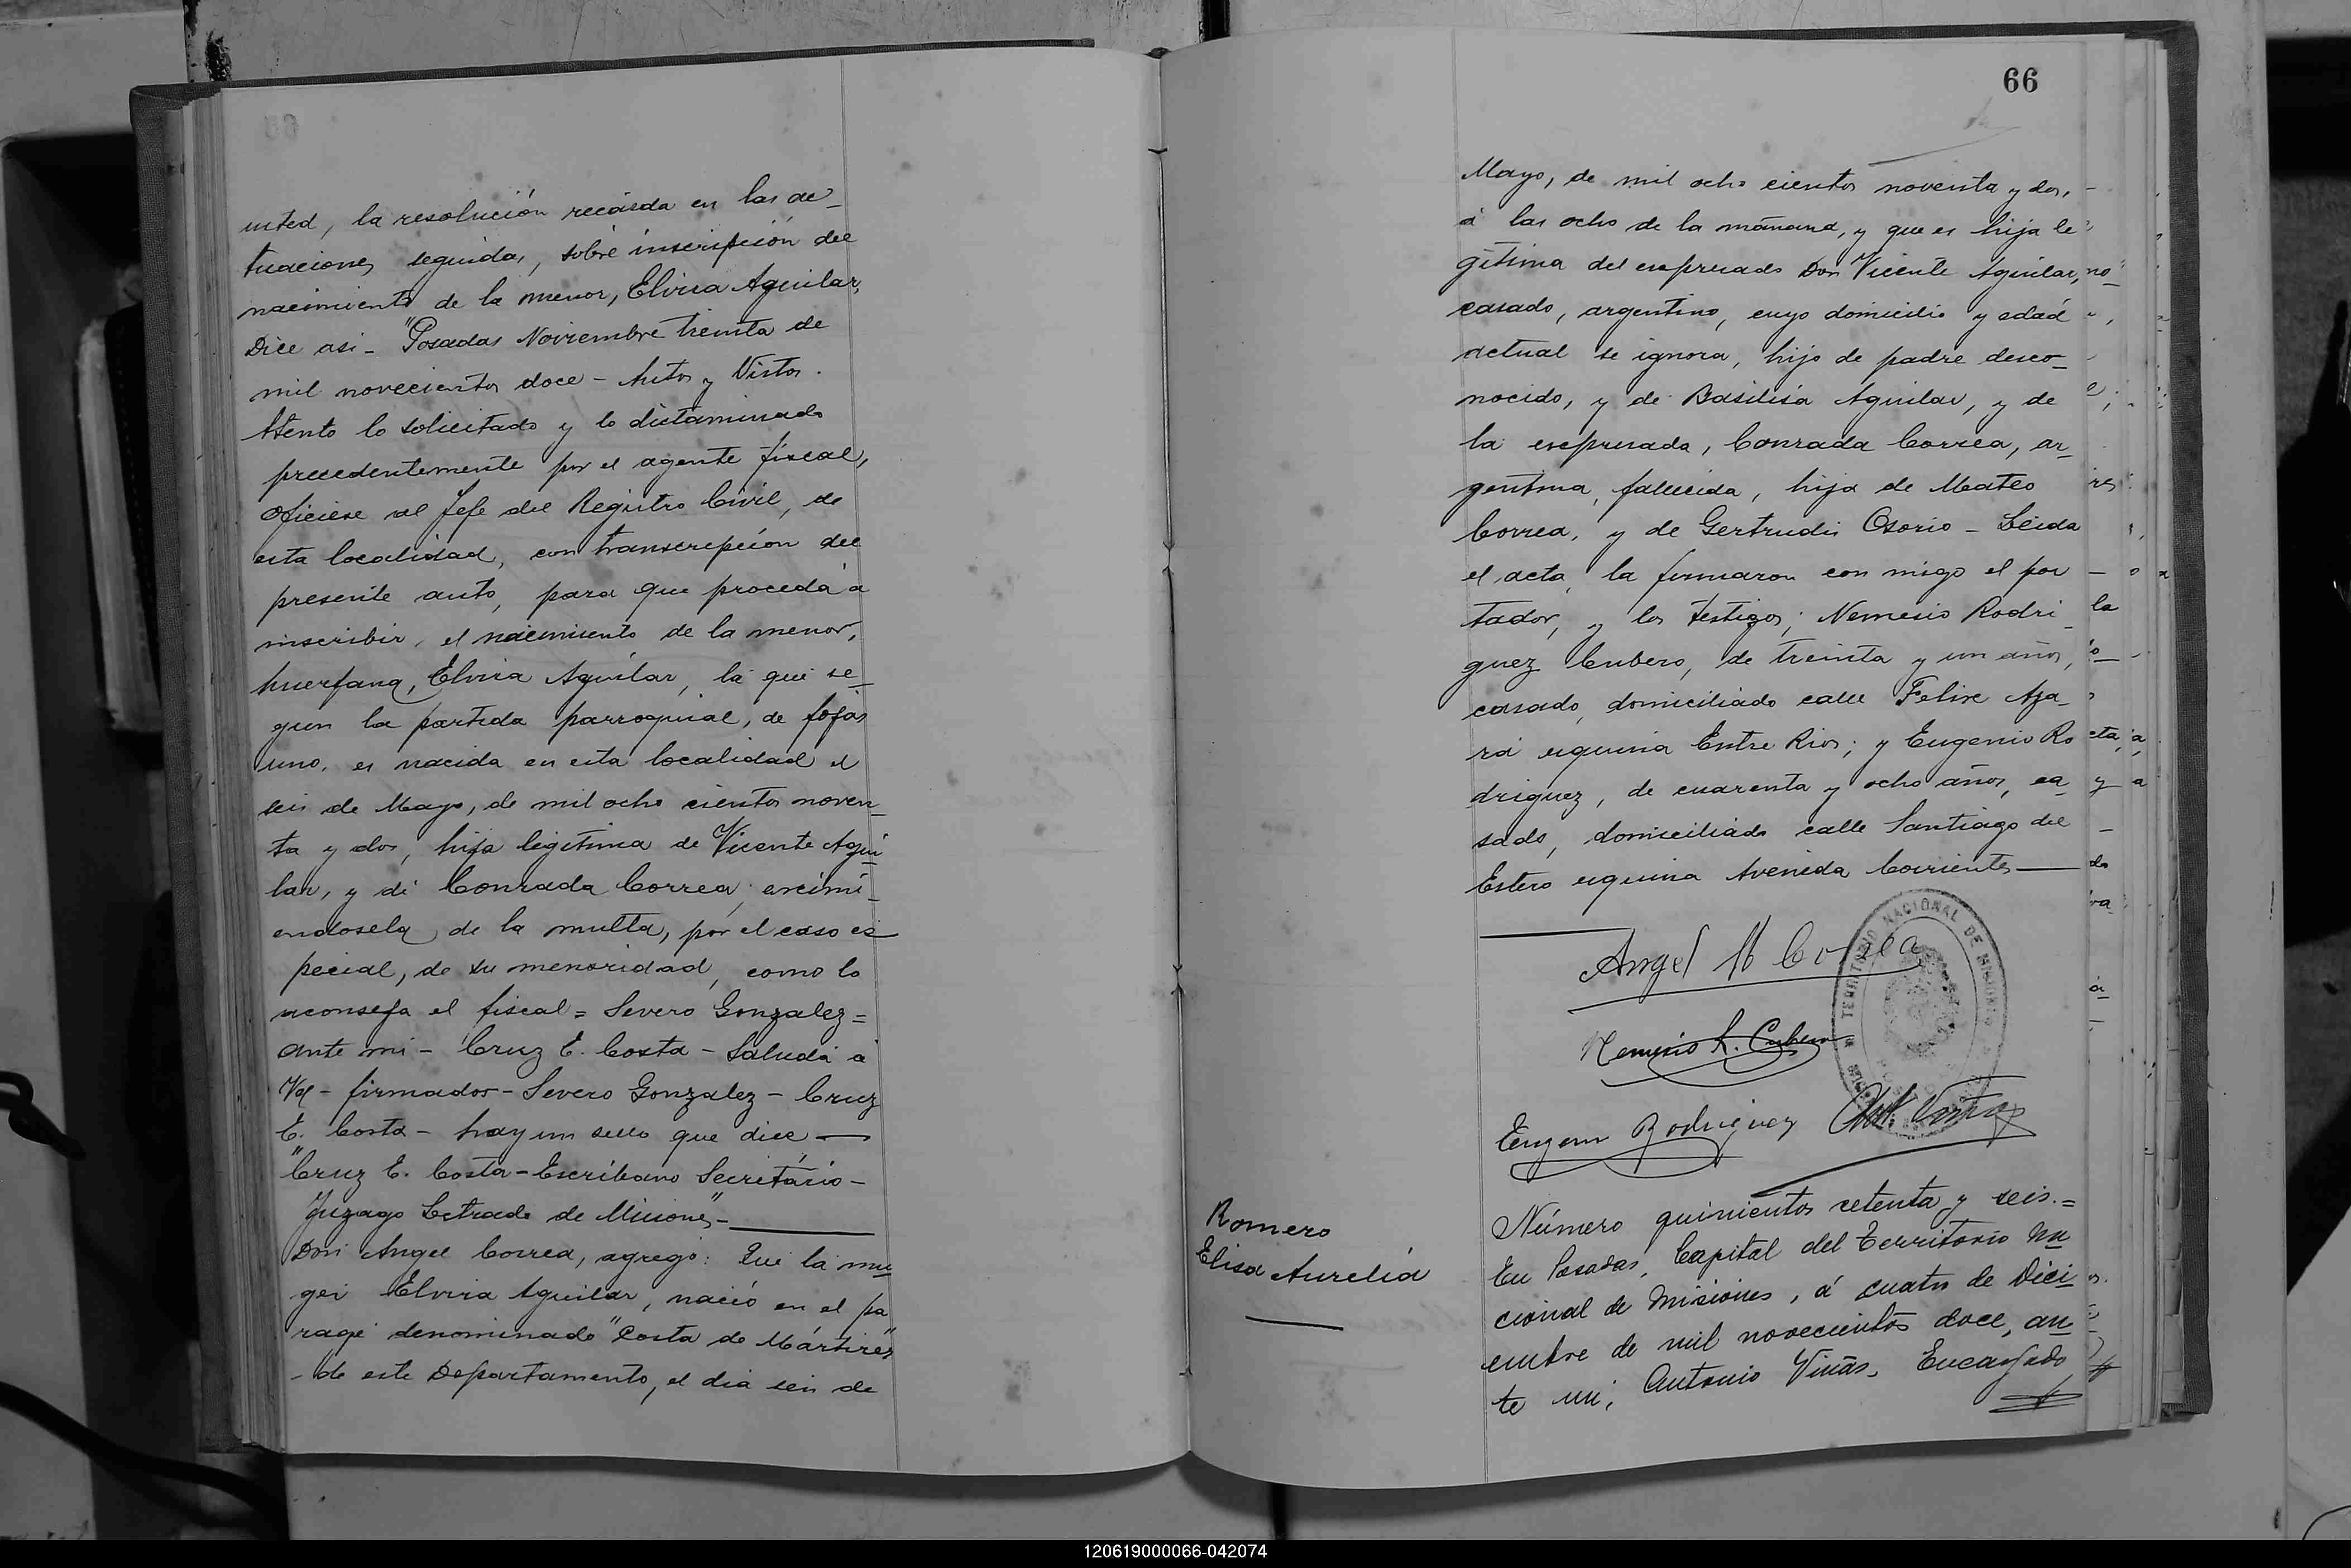 usted, la resolución recáida en las ac-
tuaciones seguidas, sobre inscripción del
nacimiento de la menor, Elvira Aguilar,
Dice asi - "Posadas Noviembre treinta de
mil novecientos doce - Autos y Vistos.
Atento lo solicitado y lo dictaminado
precedentemente por el agente fiscal,
oficiese al Jefe del Registro Civil, de
esta localidad, con transcripción del
presente auto, para que proceda a
inscribir, el nacimiento de la menor,
huerfana, Elvira Aguilar, la que se-
gun la partida parroquial, de fojas
uno, es nacida en esta localidad el
seis de Mayo, de mil ocho cientos noven-
ta y dos, hija legitima de Vicente Agui
lar, y de Conrada Correa; eximi-
endosela de la multa, por el caso es
pecial, de su menoridad, como lo
aconseja el fiscal = Severo Gonzalez =
ante mi - Cruz E. Costa - Saluda a
Vd - firmados - Severo Gonzalez - Cruz
E. Costa - hay un sello que dice —
"Cruz E. Costa - Escribano Secretário -
Juzago Letrado de Misiones" -
Don Angel Correa, agregó: Que la mu
ger Elvira Aguilar, nació en el pa
rage denominado "Costa de Mártires"
- de este Departamento, el dia seis de
66
Mayo, de mil ocho cientos noventa y dos,
á las ocho de la mañana, y que es hija le
gitima del expresado Don Vicente Aguilar,
casado, argentino, cuyo domicilio y edad
actual se ignora, hijo de padre desco-
nocido, y de Basilisa Aguilar, y de
la expresada, Conrada Correa, ar-
gentina, fallecida, hija de Mateo
Correa, y de Gertrudis Osorio - Leida
el acta, la firmaron con migo el por
tador, y los testigos; Nemesio Rodri
guez Cubero, de treinta y un años,
casado, domiciliado calle Felix Aza-
ra esquina Entre Rios; y Eugenio Ro
driguez, de cuarenta y ocho años, ca
sado, domiciliado calle Santiago del
Estero esquina Avenida Corrientes —
Angel M Correa
Nemesio R. Cubero
Eugenio Rodriguez
TERRITORIO NACIONAL DE MISIONES
Romero
Elisa Aurelia
Número quinientos setenta y seis. =
En Posadas, Capital del Territorio Na
cional de Misiones, á cuatro de Dici
embre de mil novecientos doce, an
te mi, Antonio Viñas, Encargado
120619000066-042074